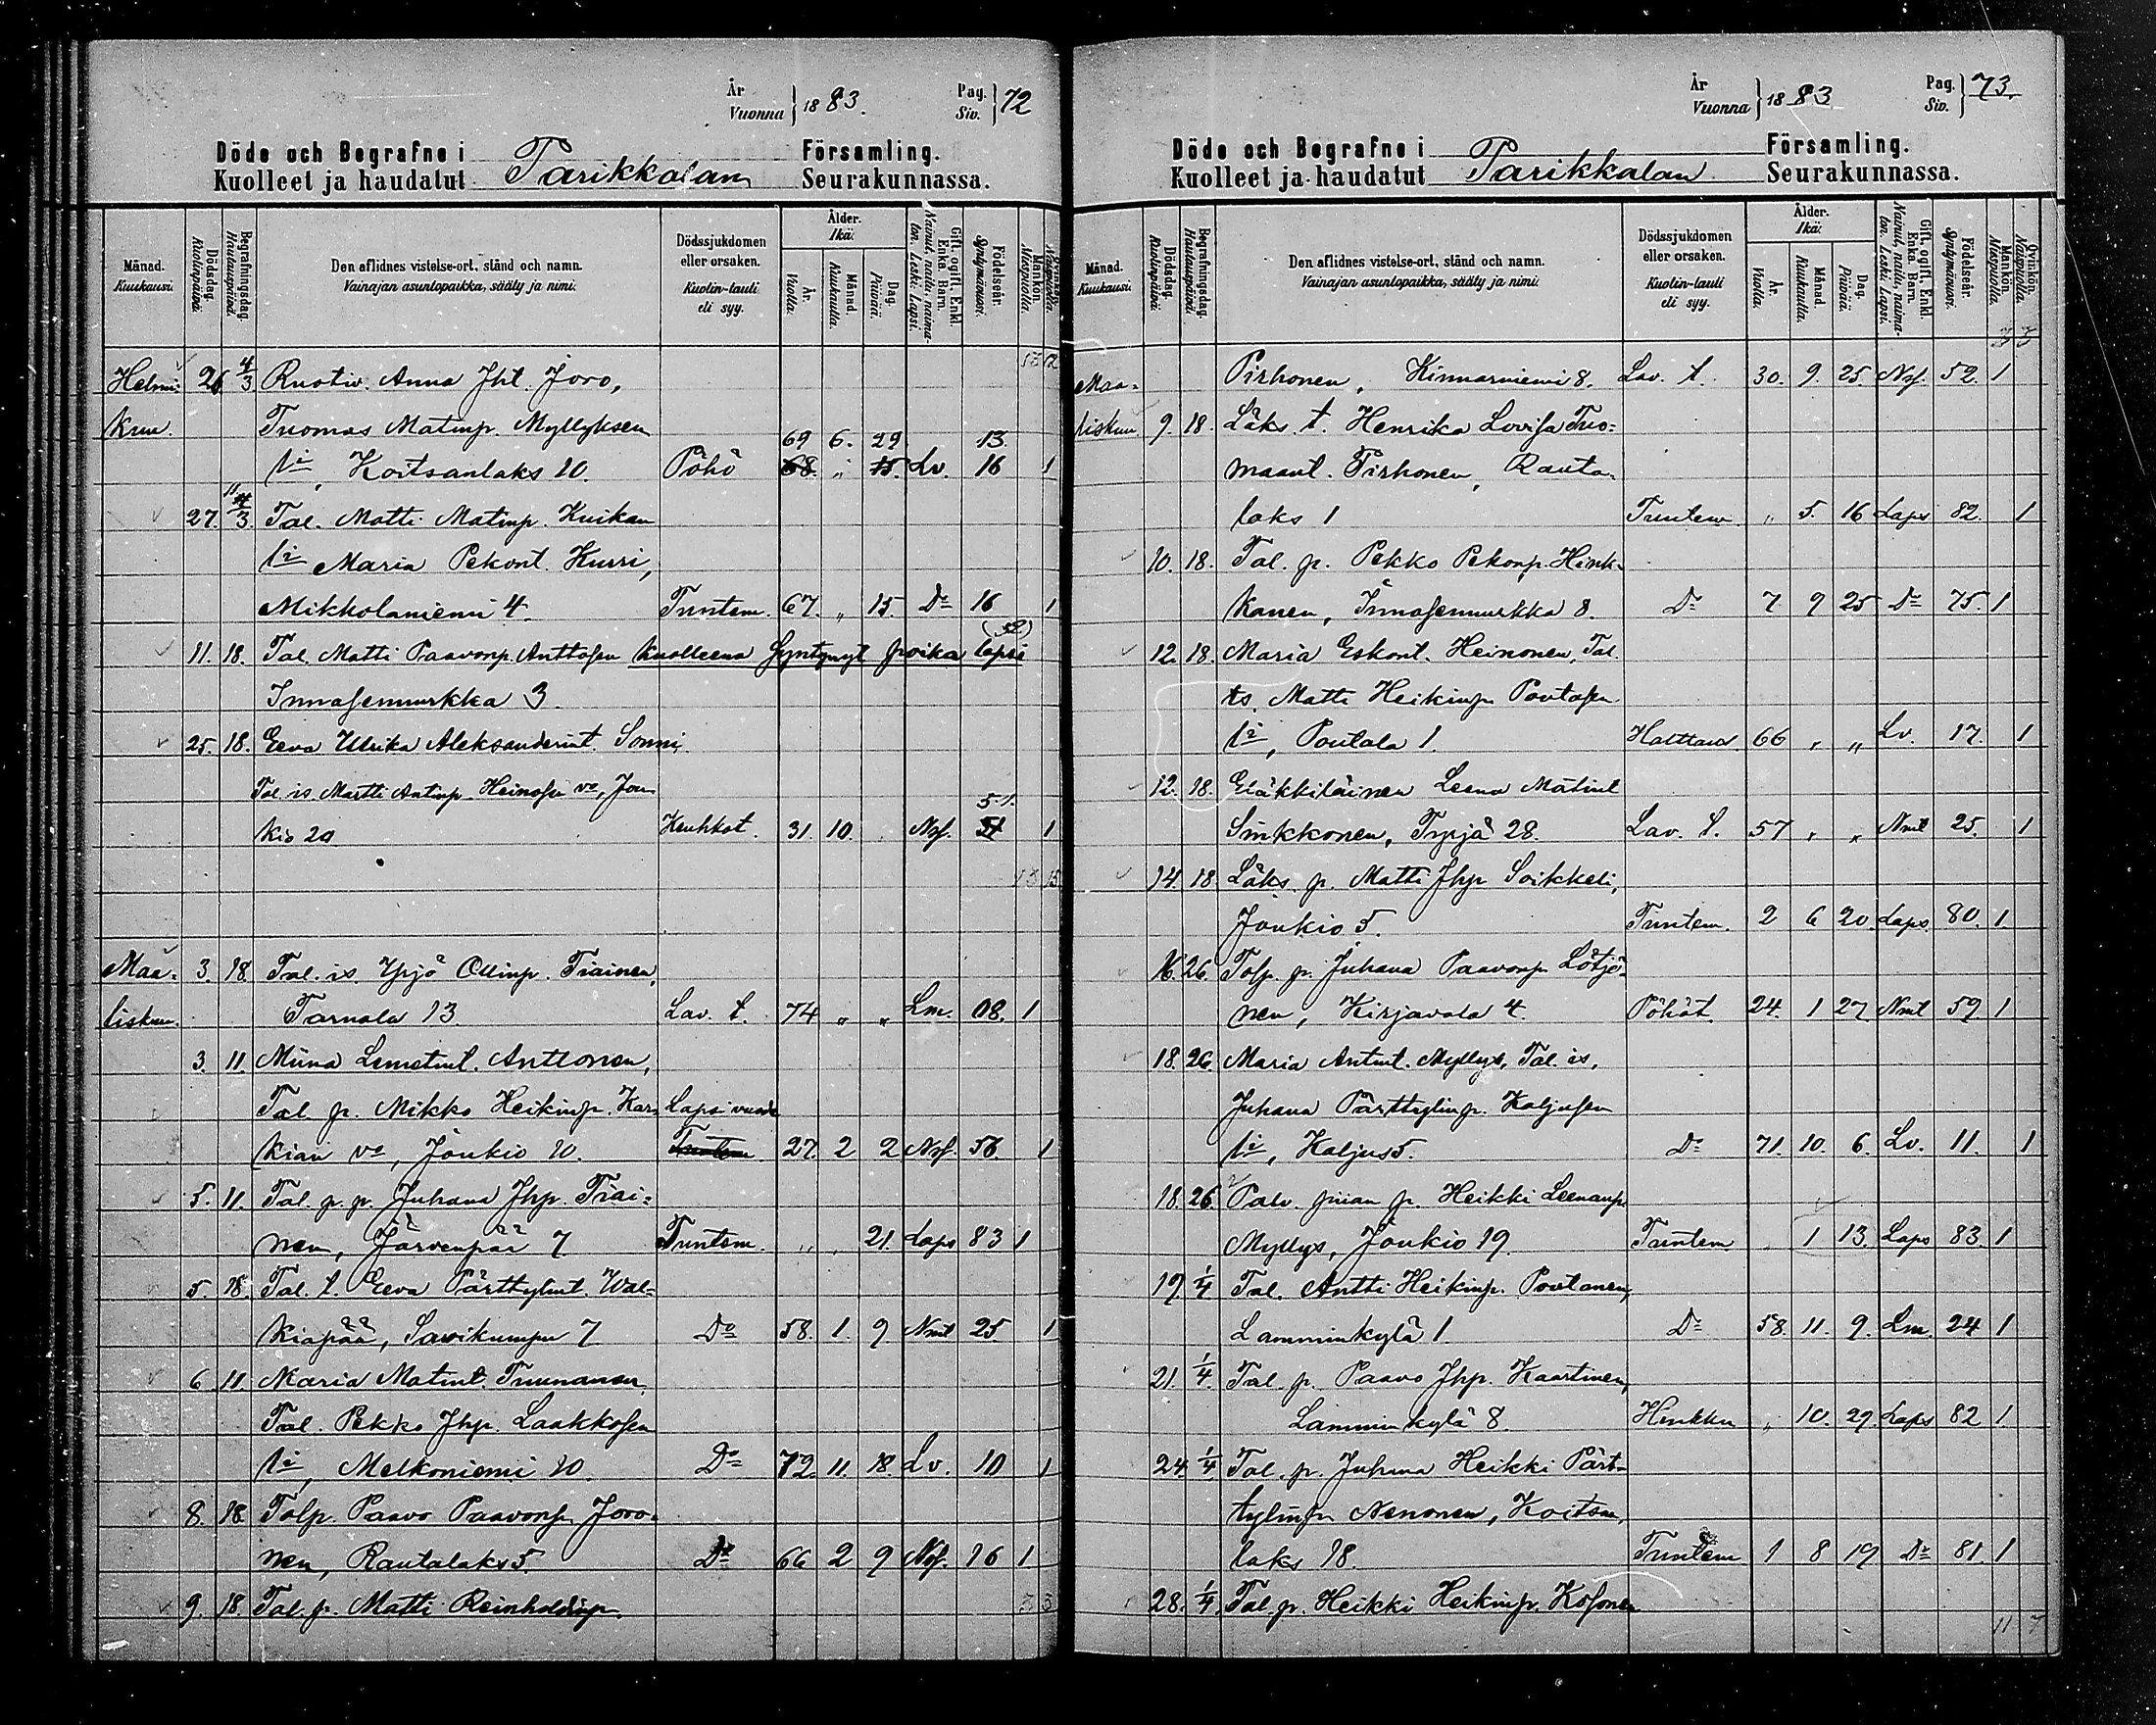 År
Vuonna } 1883.
Pag.
Siv. } 72
Döde och Begrafne i Församling.
Kuolleet ja haudatut Parikkalan Seurakunnassa.
Månad. Kuukausi.
Dödsdag. Kuolinpäivä.
Begrafningsdag. Hautauspäivä.
Den aflidnes vistelse-ort, stånd och namn.
Vainajan asuntopaikka, sääty ja nimi.
Dödssjukdomen eller orsaken.
Kuolin-tauti eli syy.
Ålder. Ikä.
År. Vuotta.
Månad. Kuukautta.
Dag. Päivää.
Gift, ogift, Enkl. Enka. Barn.
Nainut, naitu, naimaton, Leski, Lapsi.
Födelseår. Syntymävuosi.
Mankön. Miespuolia.
Helmi- 26 4/3 Ruotiv. Anna Jht. Joro,
kuu. Tuomas Matinp. Myllyksen 69 6. 29 13
li, Koitsanlaks 10. Pöhö 68 " 15 Lv. 16 1
27. 11/3 Tal. Matti Matinp. Kuikan
li Maria Pekont. Kurri,
Mikkolaniemi 4. Tuntem. 67. " 15. Do 16 1
11. 18. Tal. Matti Paavonp. Anttosen kuolleena syntynyt poika lapsi
Innasennurkka 3.
25. 18. Eeva Ulrika Aleksanderint. Sonni,
Tal. is. Martti Antinp. Heinosen vo, Jou- 51.
kio 20 Keuhkot. 31. 10. Nsf. 51 1
Maa- 3. 18. Tal. is. Yrjö Ollinp. Tiainen,
liskuu. Tarnala 13. Lav. t. 74 " " Lm. 08. 1
3. 11. Miina Lemetint. Anttonen,
Tal. p. Mikko Heikinp. Kar- Lapsi vuode
kian vo, Joukio 10. Tuntem 27. 2 2 Nsf. 56. 1
5. 11. Tal. p. p. Juhana Jhp. Tiai-
nen, Järvenpää 7. Tuntem. " " 21. Laps 83 1
5. 18. Tal. t. Eeva Pärttylint. Wal-
kiapää, Savikumpu 7 Do 58. 1. 9 Nmt 25 1
6 11. Maria Matint. Tuunanen
Tal. Pekko Jhp. Laakkosen
li, Melkoniemi 10. Do 72 11. 18. Lv. 10 1
8. 18. Talp. Paavo Paavonp. Joro-
nen, Rautalaks 5. Do 66 2 9 Nsf. 16 1
9. 18. Tal. p. Matti Reinholdinp.
År
Vuonna } 1883
Pag.
Siv. } 73.
Döde och Begrafne i Församling.
Kuolleet ja haudatut Parikkalan Seurakunnassa.
Månad. Kuukausi.
Dödsdag. Kuolinpäivä.
Begrafningsdag. Hautauspäivä.
Den aflidnes vistelse-ort, stånd och namn.
Vainajan asuntopaikka, sääty ja nimi.
Dödssjukdomen eller orsaken.
Kuolin-tauti eli syy.
Ålder. Ikä.
År. Vuotta.
Månad. Kuukautta.
Dag. Päivää.
Gift, ogift, Enkl. Enka. Barn.
Nainut, naitu, naimaton, Leski, Lapsi.
Födelseår. Syntymävuosi.
Mankön. Miespuolia.
Qvinkön. Naispuolia.
Maa- Pirhonen, Kinnarniemi 8. Lav. t. 30. 9. 25 Nsf. 52. 1
liskuu. 9. 18. Läks. t. Henrika Lovisa Tuo-
maant. Pirhonen, Rauta-
laks 1 Tuntem. " 5. 16 Laps 82. 1
10. 18. Tal. p. Pekko Pekonp. Hink-
kanen, Innasennurkka 8. Do 7 9 25 Do 75. 1
12. 18. Maria Eskont. Heinonen, Tal.
is. Matti Heikinp. Poutasen
li, Poutala 1. Halttaus 66 " " Lv. 17. 1
12. 18. Eläkkiläinen Leena Matint
Sinkkonen, Tyrjä 28. Lav. t. 57 " " Nmt 25. 1
14. 18. Läks. p. Matti Jhp Soikkeli,
Joukio 5. Tuntem. 2 6 20. Laps. 80. 1.
16. 26. Talp. p. Juhana Paavonp. Lötjö-
nen, Kirjavala 4. Pöhöt. 24. 1 27. Nmt 59. 1
18. 26. Maria Antint. Myllys, Tal. is.
Juhana Pärttylinp. Kaljusen
li, Kaljus 5. Do 71. 10. 6. Lv. 11. 1
18. 26 Palv. piian p. Heikki Leenanp.
Myllys, Joukio 19. Tuntem 1 13. Laps 83. 1
19. 1/4 Tal. Antti Heikinp. Poutanen,
Lamminkylä 1. Do 58. 11. 9. Lm. 24 1
21. 1/4. Tal. p. Paavo Jhp. Kaartinen,
Lamminkylä 8. Hinku " 10. 29. Laps 82 1.
24. 1/4 Tal. p. Juhana Heikki Pärt-
tylinp. Nenonen, Koitsan-
laks 18. Tuntem 1 8 19 Do 81. 1
28. 1/4. Tal. p. Heikki Heikinp. Kosonen
11 7